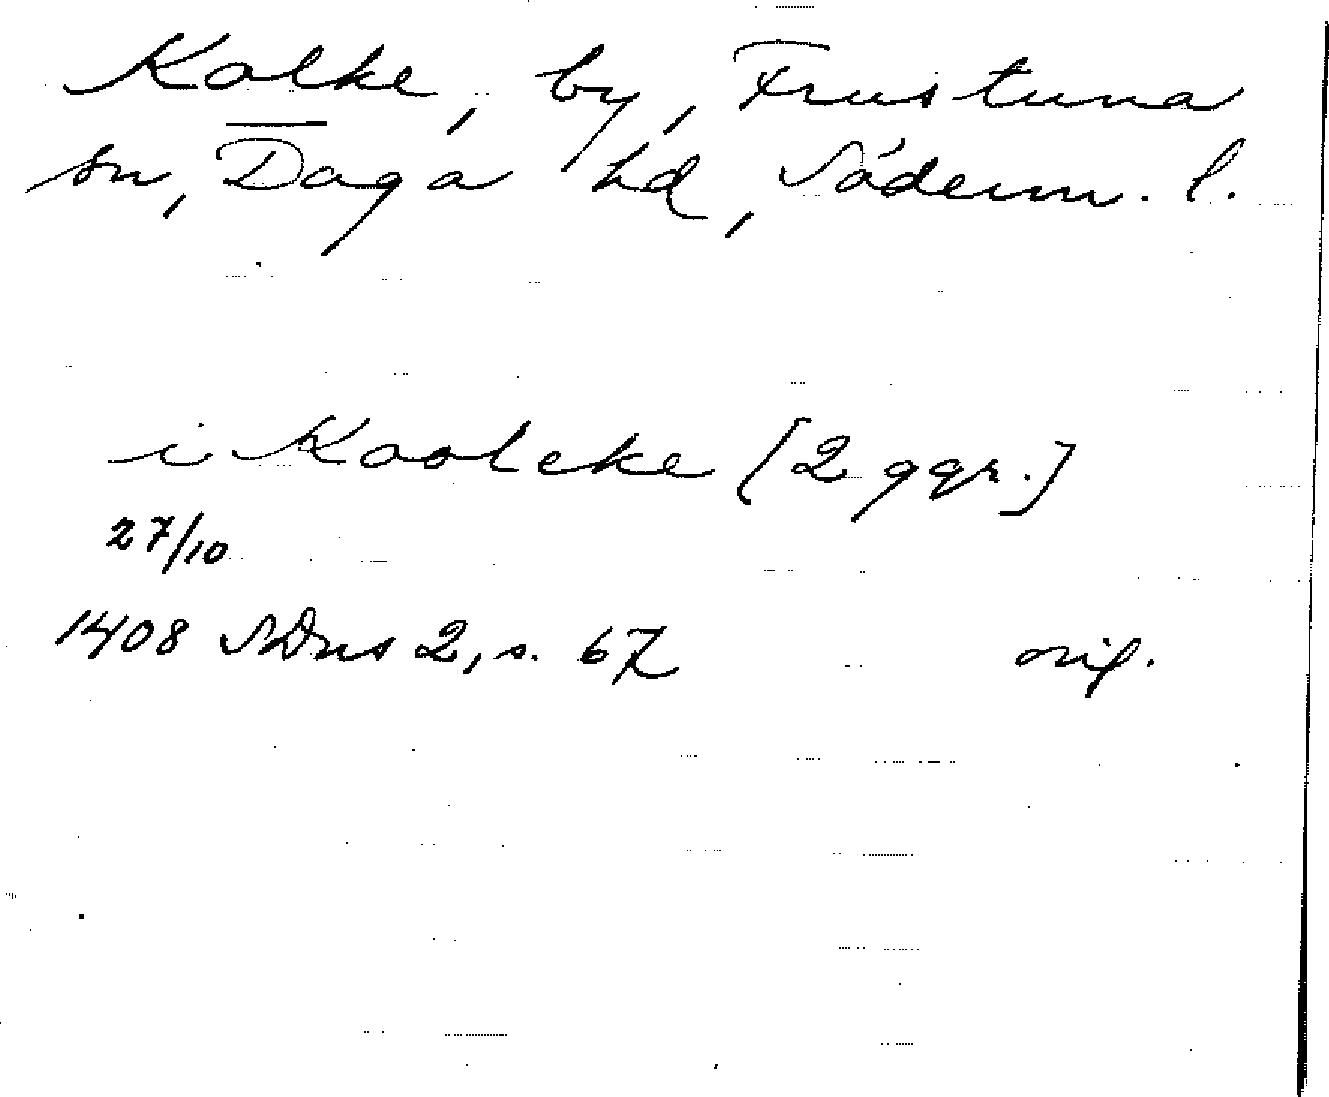 Kalke, by, Frustuna
sn, Daga hd, Söderm. l.
i Kaalcke [2 ggr.]
27/10
1408 SDns 2, s. 67
orig.